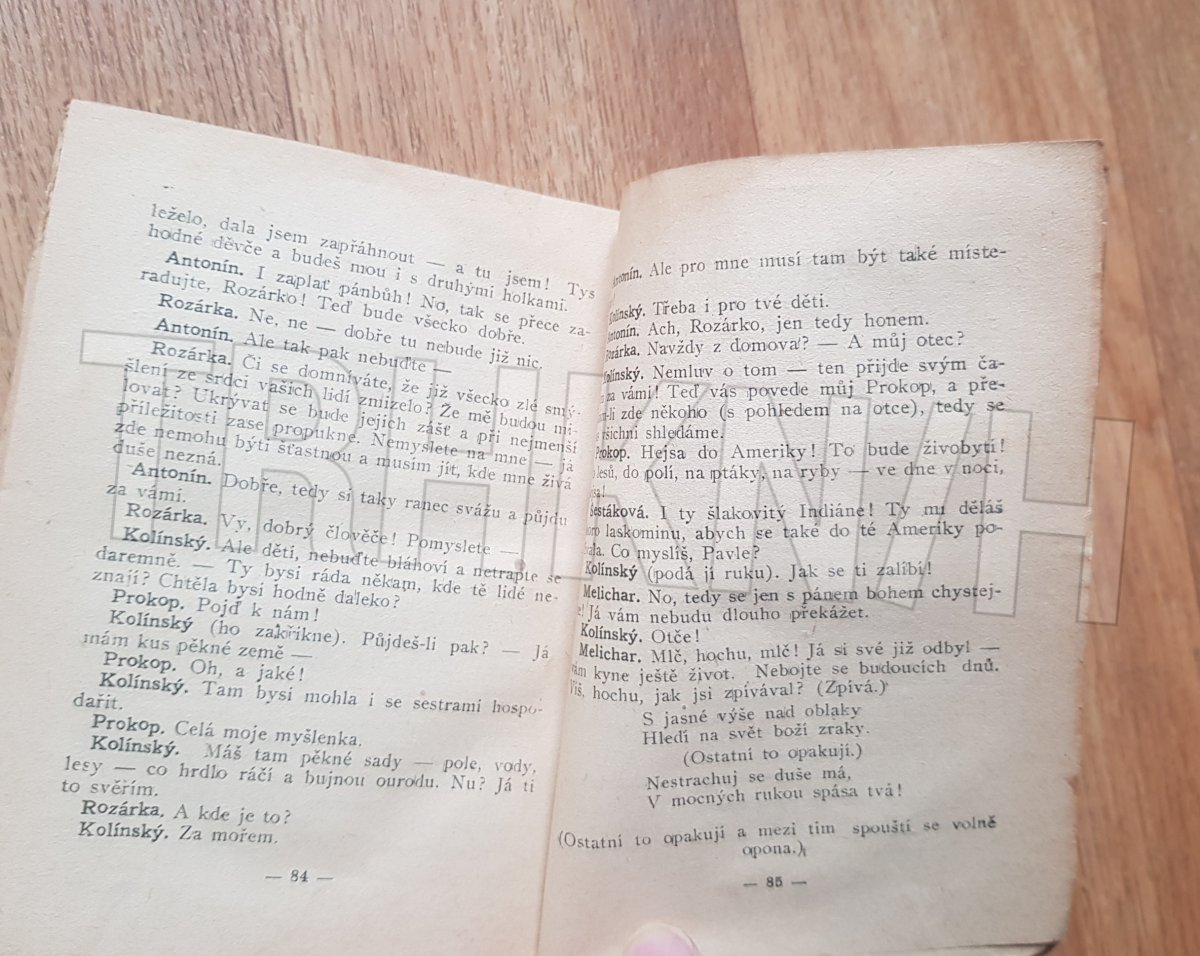 leželo, dala jsem zapřáhnout — a tu jsem! Tys
hodné děvče a budeš mou i s druhými holkami.
Antonín. I zaplať pánbůh! No, tak se přece za-
radujte, Rozárko! Teď bude všecko dobře.
Rozárka. Ne, ne — dobře tu nebude již nic.
Antonín. Ale tak pak nebuďte —
Rozárka. Či se domníváte, že již všecko zlé smý-
šlení ze srdcí vašich lidí zmizelo? Že mě budou mi-
lovat? Ukrývat se bude jejich zášť a při nejmenší
příležitosti zase propukne. Nemyslete na mne — já
zde nemohu býti šťastnou a musím jít, kde mne živá
duše nezná.
Antonín. Dobře, tedy si taky ranec svážu a půjdu
za vámi.
Rozárka. Vy, dobrý člověče! Pomyslete —
Kolínský. Ale děti, nebuďte bláhoví a netrapte se
daremně. — Ty bysi ráda někam, kde tě lidé ne-
znají? Chtěla bysi hodně daleko?
Prokop. Pojď k nám!
Kolínský (ho zakřikne). Půjdeš-li pak? — Já
mám kus pěkné země —
Prokop. Oh, a jaké!
Kolínský. Tam bysi mohla i se sestrami hospo-
dařit.
Prokop. Celá moje myšlenka.
Kolínský. Máš tam pěkné sady — pole, vody,
lesy — co hrdlo ráčí a bujnou ourodu. Nu? Já ti
to svěřím.
Rozárka. A kde je to?
Kolínský. Za mořem.
— 84 —
Antonín. Ale pro mne musí tam být také míste-
Kolínský. Třeba i pro tvé děti.
Antonín. Ach, Rozárko, jen tedy honem.
Rozárka. Navždy z domova? — A můj otec?
Kolínský. Nemluv o tom — ten přijde svým ča-
za vámi! Teď vás povede můj Prokop, a pře-
-li zde někoho (s pohledem na otce), tedy se
všichni shledáme.
Prokop. Hejsa do Ameriky! To bude živobytí!
lesů, do polí, na ptáky, na ryby — ve dne v noci,
Šestáková. I ty šlakovitý Indiáne! Ty mi děláš
laskominu, abych se také do té Ameriky po-
Co myslíš, Pavle?
Kolínský (podá jí ruku). Jak se ti zalíbí!
Melichar. No, tedy se jen s pánem bohem chystej-
Já vám nebudu dlouho překážet.
Kolínský. Otče!
Melichar. Mlč, hochu, mlč! Já si své již odbyl —
vám kyne ještě život. Nebojte se budoucích dnů.
Víš, hochu, jak jsi zpívával? (Zpívá.)
S jasné výše nad oblaky
Hledí na svět boží zraky.
(Ostatní to opakují.)
Nestrachuj se duše má,
V mocných rukou spása tvá!
(Ostatní to opakují a mezi tím spouští se volně
opona.)
— 85 —
TRHKNIH